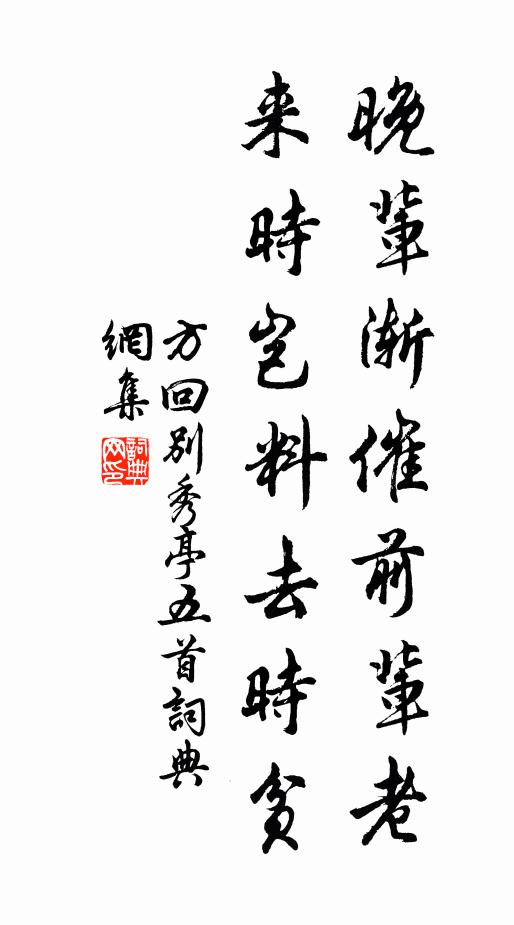 晚輩漸催前輩老
来時岂料去時貧
方回别秀亭五首詞典
網集
詞典
网印